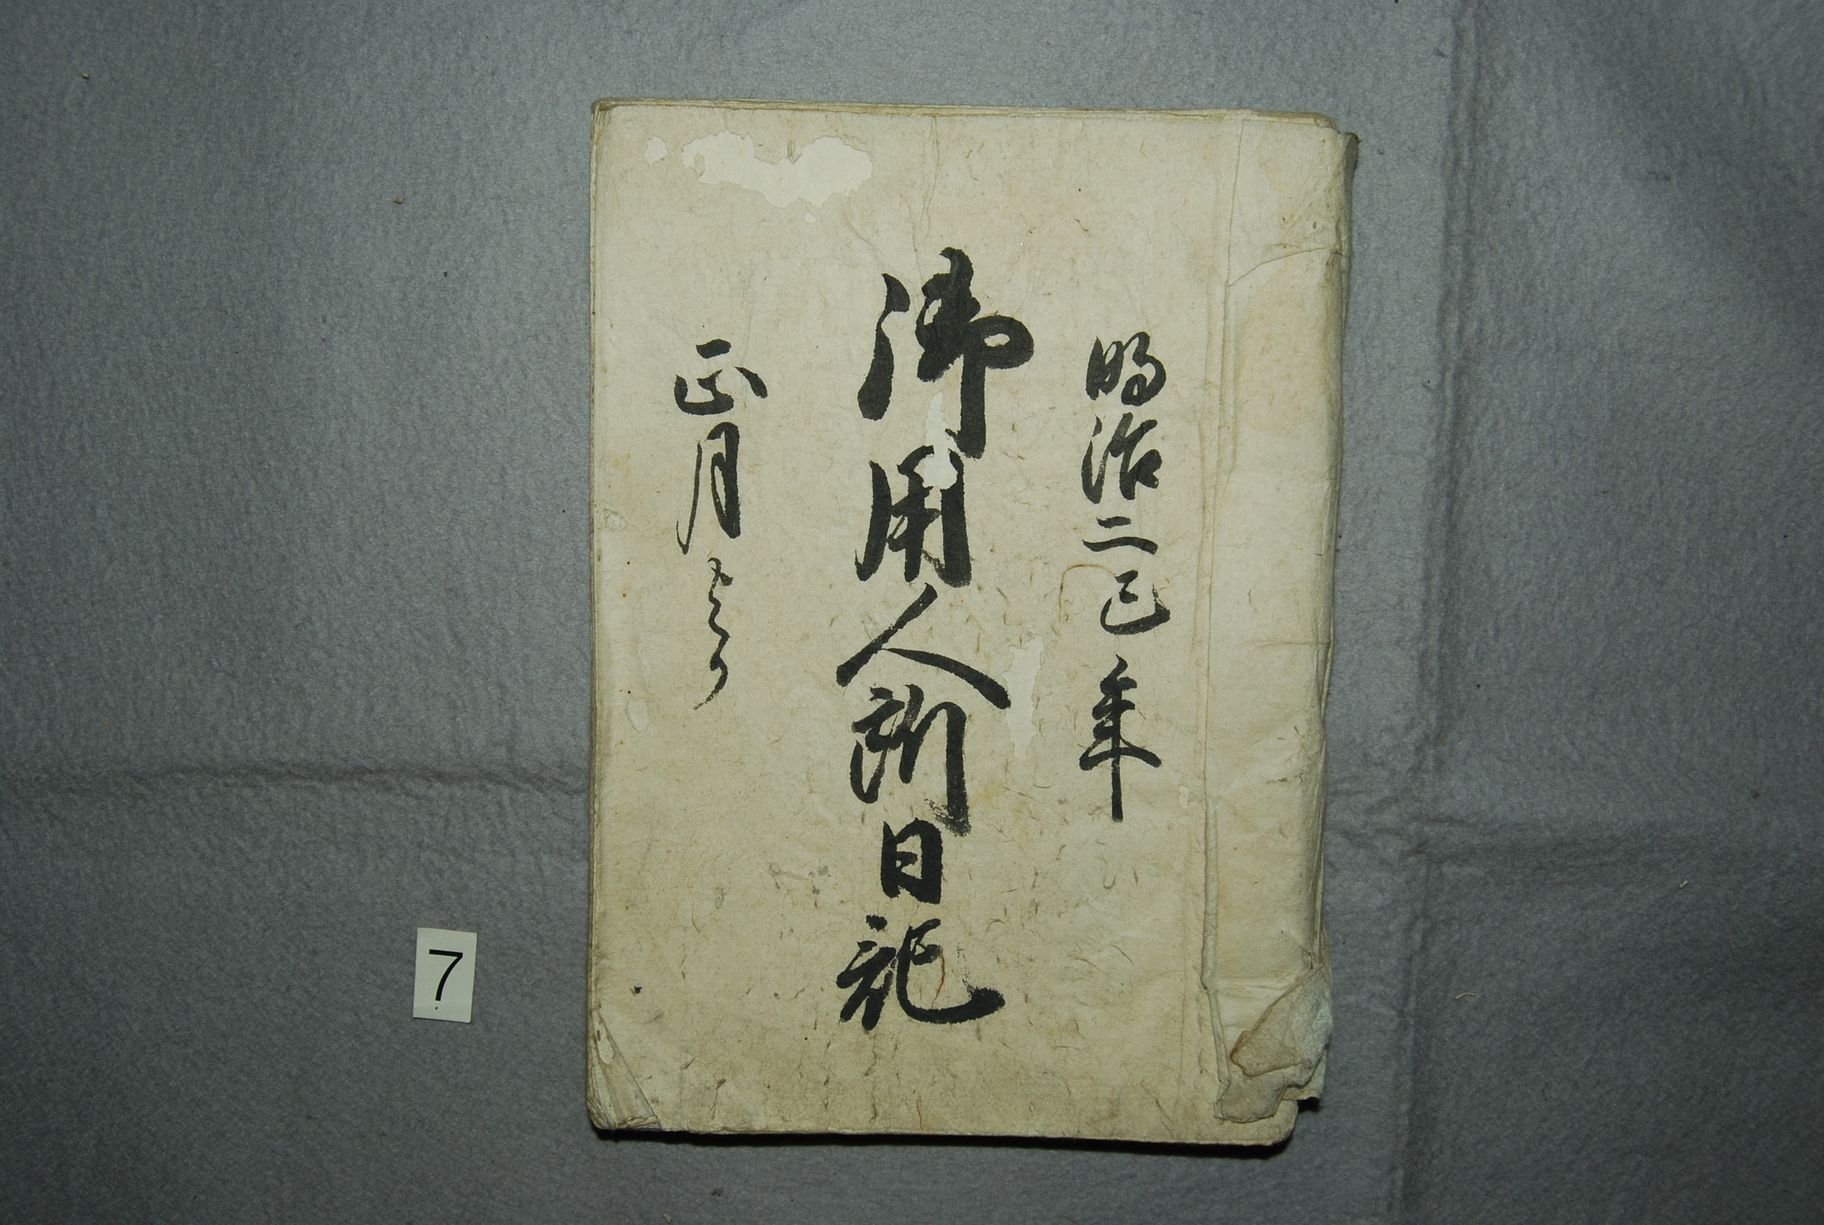 明治二巳年
御用人所日記
正月より
7